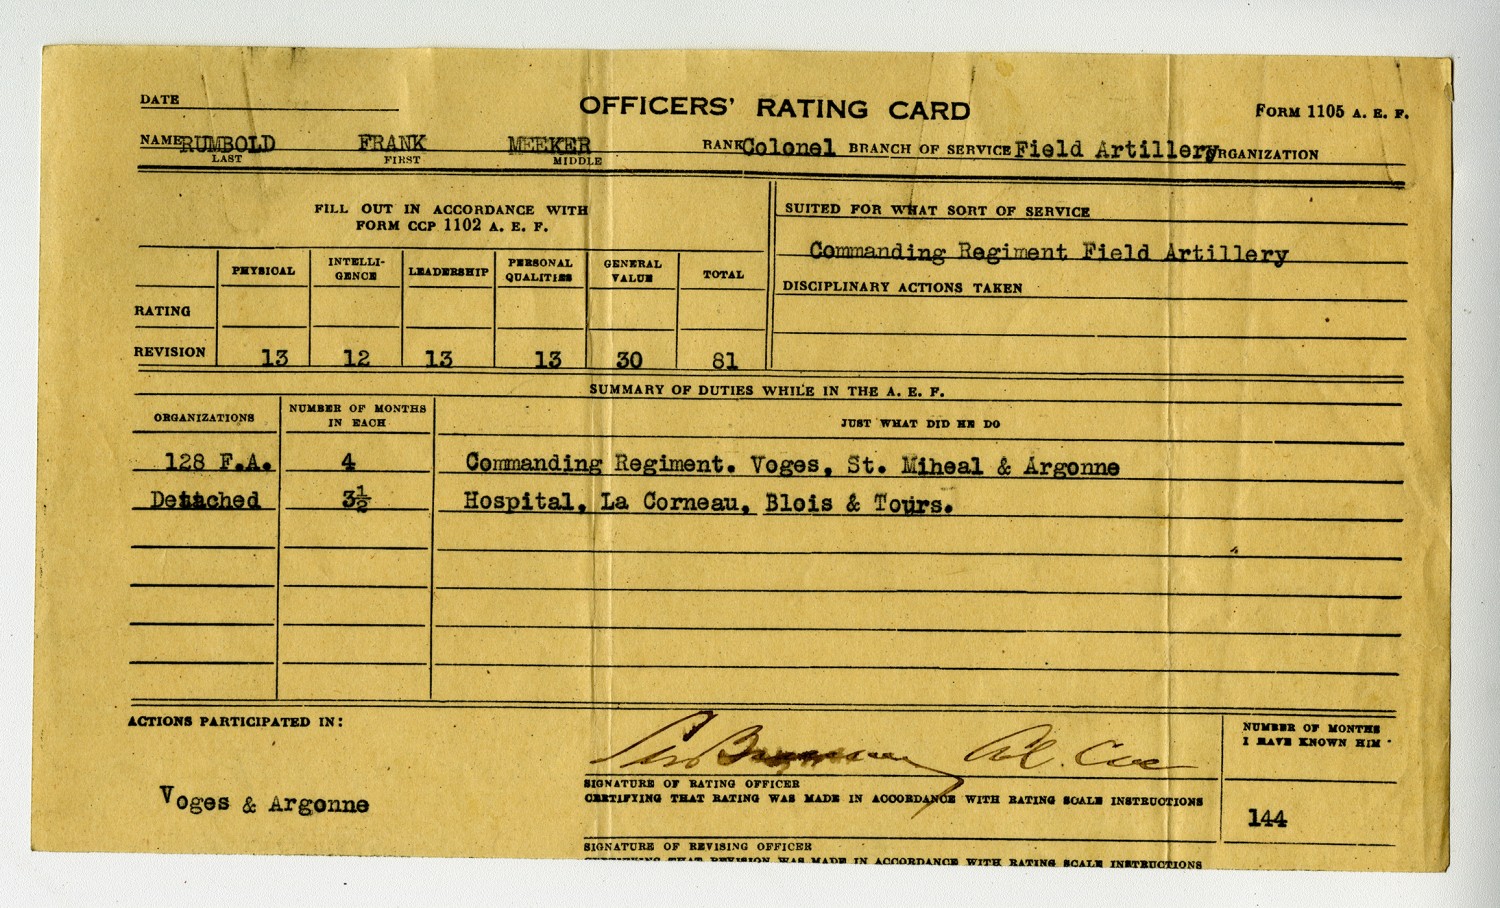 DATE OFFICERS' RATING CARD FORM 1105 A. E. F.
NAME RUMBOLD FRANK MEEKER RANK Colonel BRANCH OF SERVICE Field Artillery ORGANIZATION
LAST FIRST MIDDLE
FILL OUT IN ACCORDANCE WITH
FORM CCP 1102 A. E. F.
SUITED FOR WHAT SORT OF SERVICE
Commanding Regiment Field Artillery
DISCIPLINARY ACTIONS TAKEN
PHYSICAL INTELLI-GENCE LEADERSHIP PERSONAL QUALITIES GENERAL VALUE TOTAL
RATING
REVISION 13 12 13 13 30 81
SUMMARY OF DUTIES WHILE IN THE A. E. F.
ORGANIZATIONS NUMBER OF MONTHS IN EACH JUST WHAT DID HE DO
128 F.A. 4 Commanding Regiment. Voges, St. Miheal & Argonne
Detached 3½ Hospital, La Corneau, Blois & Tours.
ACTIONS PARTICIPATED IN:
Voges & Argonne
Col. Cav
SIGNATURE OF RATING OFFICER
CERTIFYING THAT RATING WAS MADE IN ACCORDANCE WITH RATING SCALE INSTRUCTIONS
NUMBER OF MONTHS
I HAVE KNOWN HIM
144
SIGNATURE OF REVISING OFFICER
CERTIFYING THAT REVISION WAS MADE IN ACCORDANCE WITH RATING SCALE INSTRUCTIONS